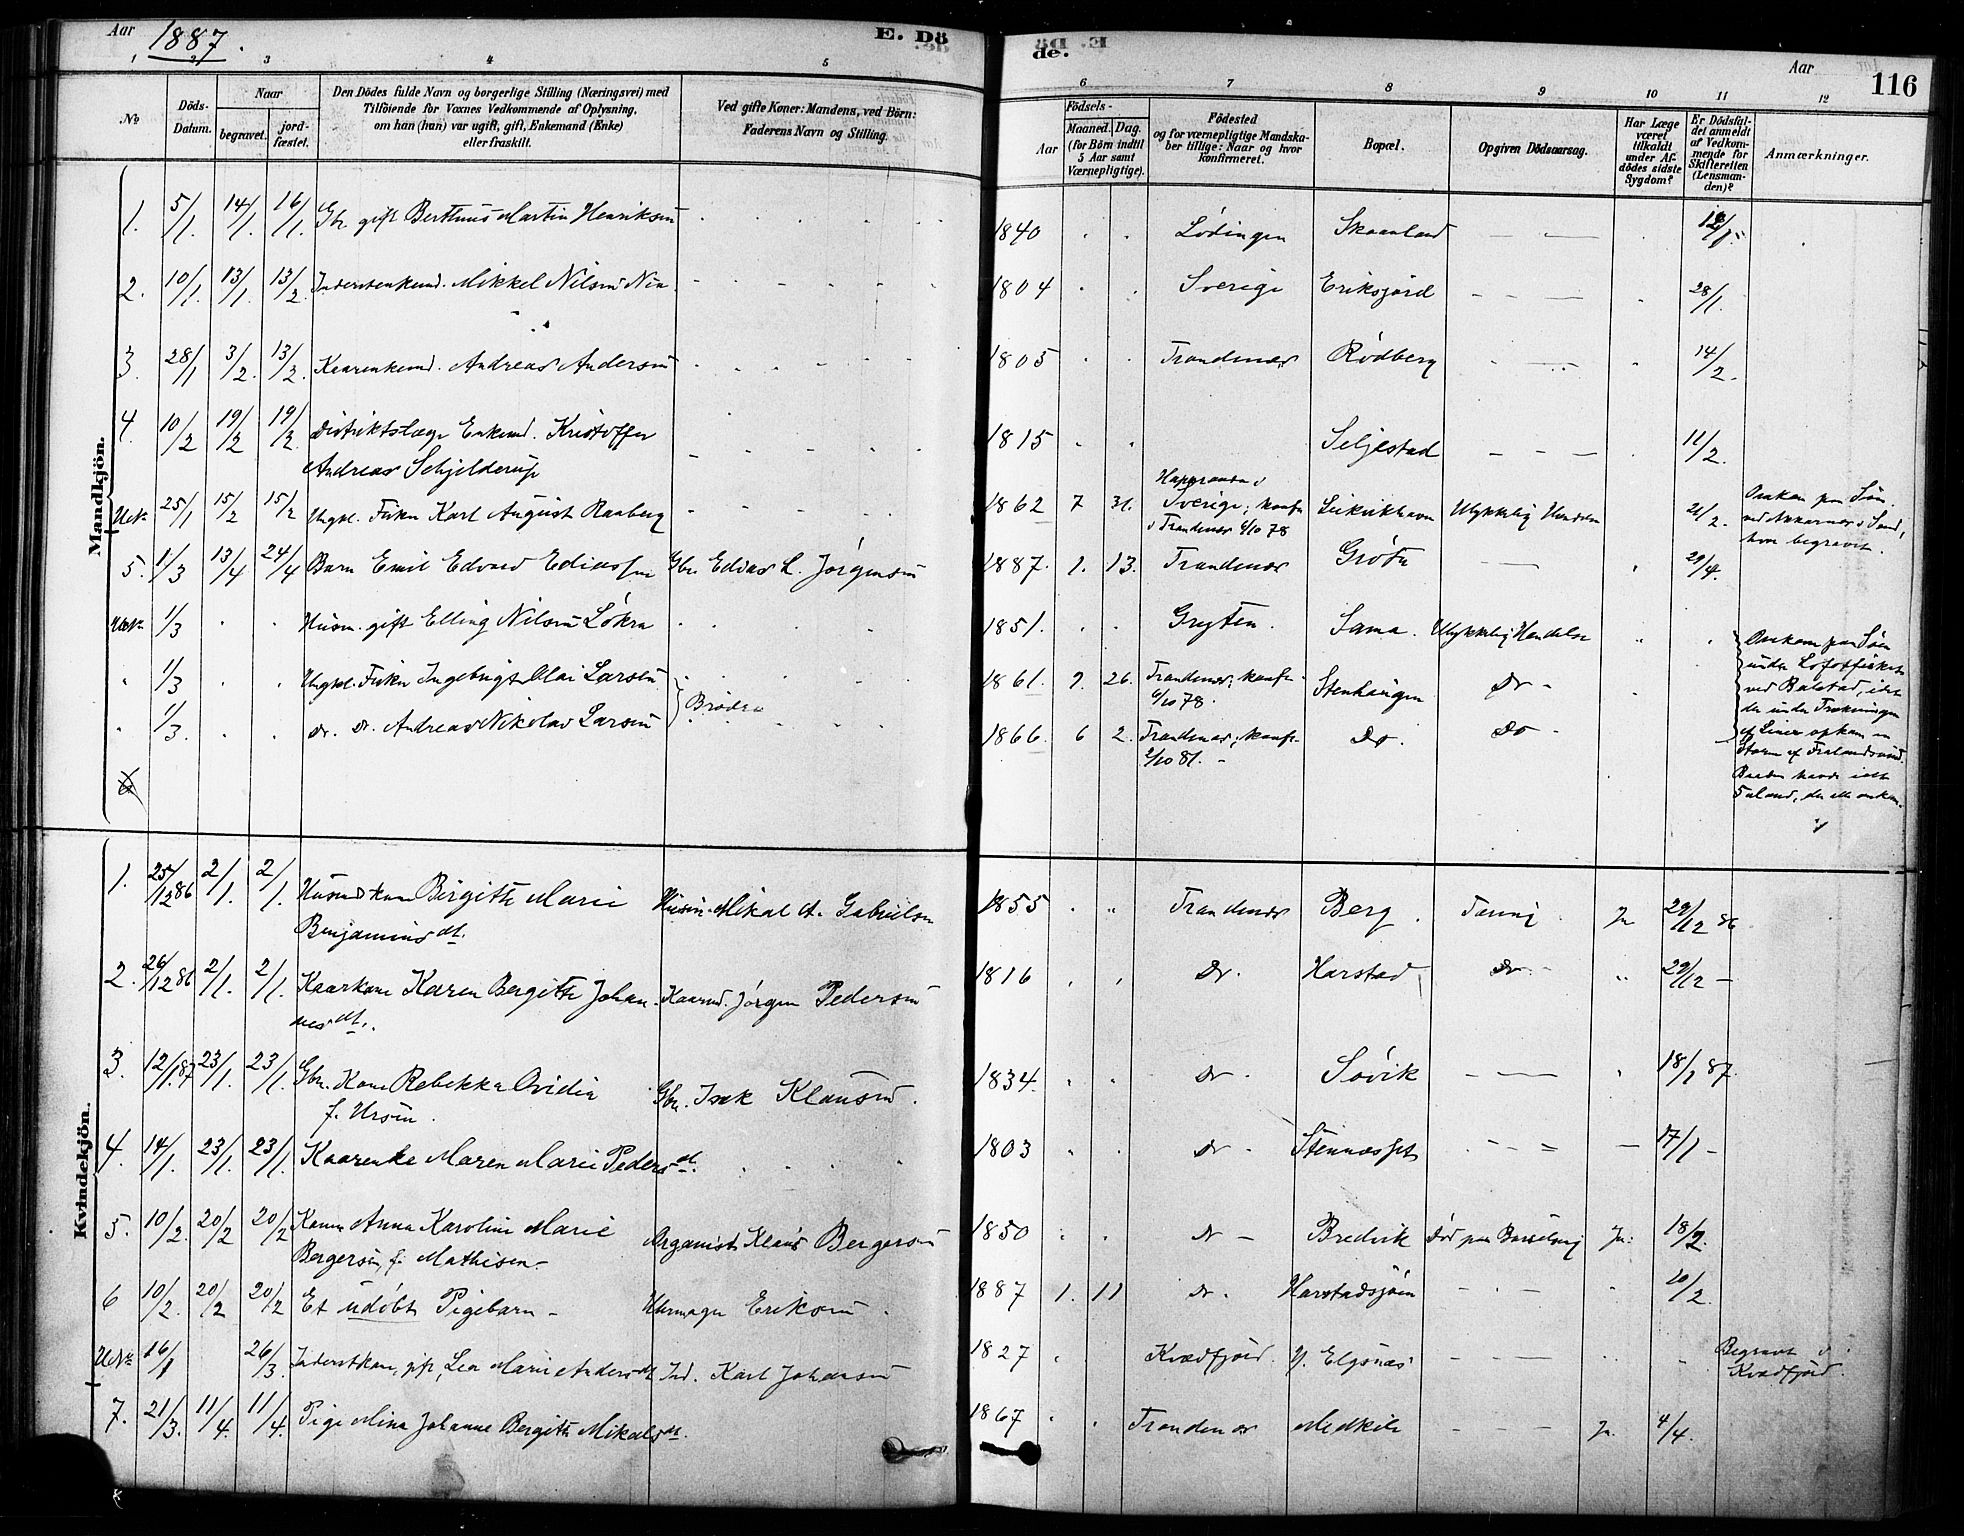 Aar 1887.
E. Dö
de.
Aar
116
1 2 3 4 5
6 7 8 9 10 11 12
No
Döds-Datum.
Naar
begravet.
jord-fæstet.
Den Dödes fulde Navn og borgerlige Stilling (Næringsvei) med
Tilföiende for Voxnes Vedkommende af Oplysning,
om han (hun) var ugift, gift, Enkemand (Enke)
eller fraskilt.
Ved gifte Koner: Mandens, ved Börn:
Faderens Navn og Stilling.
Födsels-
Aar
Maaned. Dag.
(for Börn indtil
5 Aar samt
Værnepligtige).
Födested
og for værnepligtige Mandska-
ber tillige: Naar og hvor
konfirmeret.
Bopæl.
Opgiven Dödsaarsag.
Har Læge
været
tilkaldt
under Af-
dödes sidste
Sygdom?
Er Dödsfal-
det anmeldt
af Vedkom-
mende for
Skifteretten
(Lensman-
den)?
Anmærkninger.
Mandkjön.
1. 5/1 14/1 16/1 Gbr. gift Berthinus Martin Henriksen 1840 Lödingen Skaanland
2. 10/1. 13/1. 13/2. Mikkel Nilsen 1804 Sverige Eriksjord 28/1.
3. 28/1 3/2. 13/2. Kaarenkemd. Andreas Andersen 1805 Trondenæs Rödberg 14/2.
4. 10/2 19/2 19/2 Distriktslæge Enkemd. Kristoffer
Andreas Schjelderup 1815 Seljestad 11/2.
25/1 15/2 15/2 Ungkl. Fisker Karl August Raaberg 1862 7 31. Haparanda i
Sverige; konf.
i Trondenæs 6/10 78 Ulykkelig Hendelse 21/2.
Omkom paa Söen
hvor begravet.
5. 1/3 13/4 24/4 Barn Emil Edvard Ediassen Gbr. Edias L. Jörgensen 1887. 1. 13. Trondenæs Gröta 29/4.
1/3 Husm. gift Elling Nilsen Lökra 1851. Gryten. Sama. Ulykkelig Hendelse
1/3 Ungkl. Fisker Ingebrigt Olai Larsen 1861. 9. 26. Trondenæs; konf.
6/10 78. Stenhaugen Do
Brödre
1/3. Do. Do. Andreas Nikolai Larsen 1866. 6 2. Trondenæs; konf.
2/10 81. Do. Do
Omkom paa Söen
under Lofotfisket
ved Balstad, idet
der under Trækningen
af Liner opkom en
Storm af Fralandsvind.
Baaden havde
5 Mand, der alle omkom.
Kvindekjön.
1. 25/12 86 2/1. 2/1. Husmds kone Birgitte Marie
Benjaminsdt. Husm. Mikal A. Gabrielsen 1855 Trondenæs Berg. Tæring. Ja 29/12 86
2. 26/12 86 2/1. 2/1. Kaarkone Karen Bergitte Johan-
nesdt. Kaarmd. Jörgen Pedersen 1816 Do. Harstad Do. 29/12 —
3. 12/1 87 23/1. 23/1. Gbr. Kone Rebekka Ovidia
f. Ursin. Gbr. Isak Klausen. 1834. Do. Sövik 18/1 87.
4. 14/1. 23/1. 23/1. Kaarenke Maren Marie Pedersdt. 1803 Do. Stennesset 17/1 —
5. 10/2. 20/2 20/2 Kone Anna Karoline Marie
Bergersen, f. Mathisen. Organist Klaus Bergersen 1850 Do — Bredvik Död paa Barselseng Ja. 18/2.
6 10/2. 20/2 20/2 Et udöbt Pigebarn — Urmager Eriksen. 1887 1. 11 Do. Harstadsjöen 20/2.
16/1 26/3. Inderstkone, gift, Lea Marie Andersdt Ind. Karl Johansen 1827 Kvædfjord. Y. Elgsnæs Begravet i
Kvædfjord.
7. 21/3. 11/4. 11/4. Pige Mina Johanne Bergitte Mikalsdt. 1867 Trondenæs Medkila Ja. 4/4.